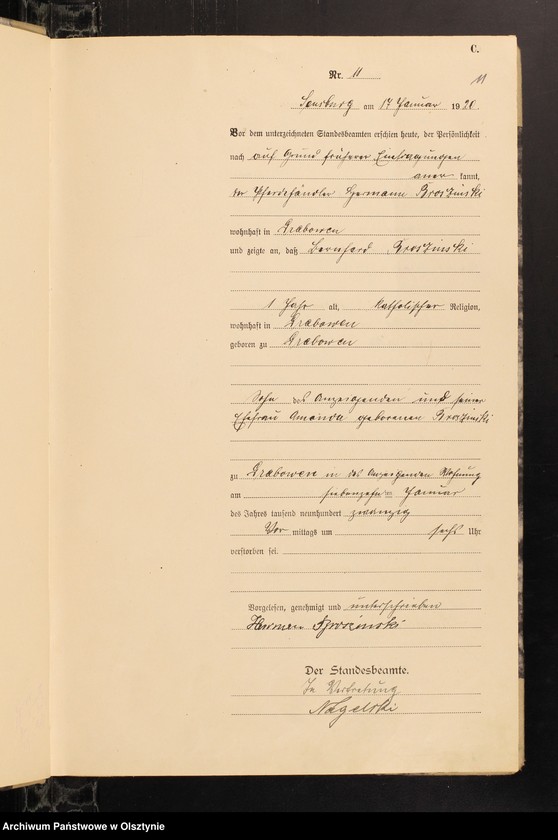 C.
Nr. 11
11
Sensburg am 17 Januar 1920.
Vor dem unterzeichneten Standesbeamten erschien heute, der Persönlichkeit
nach auf Grund früherer Eintragungen
aner kannt,
der Pferdehändler Hermann Broszinski
wohnhaft in Grabowen
und zeigte an, daß Bernhard Broszinski
1 Jahr alt, katholischer Religion,
wohnhaft in Grabowen
geboren zu Grabowen
Sohn des Anzeigenden und seiner
Ehefrau Amanda geborenen Broszinski
zu Grabowen in des Anzeigenden Wohnung
am siebenzehn ten Januar
des Jahres tausend neunhundert zwanzig
Vor mittags um sechs Uhr
verstorben sei.
Vorgelesen, genehmigt und unterschrieben
Herman Broszinski
Der Standesbeamte.
In Vertretung
Nagelski
Archiwum Państwowe w Olsztynie